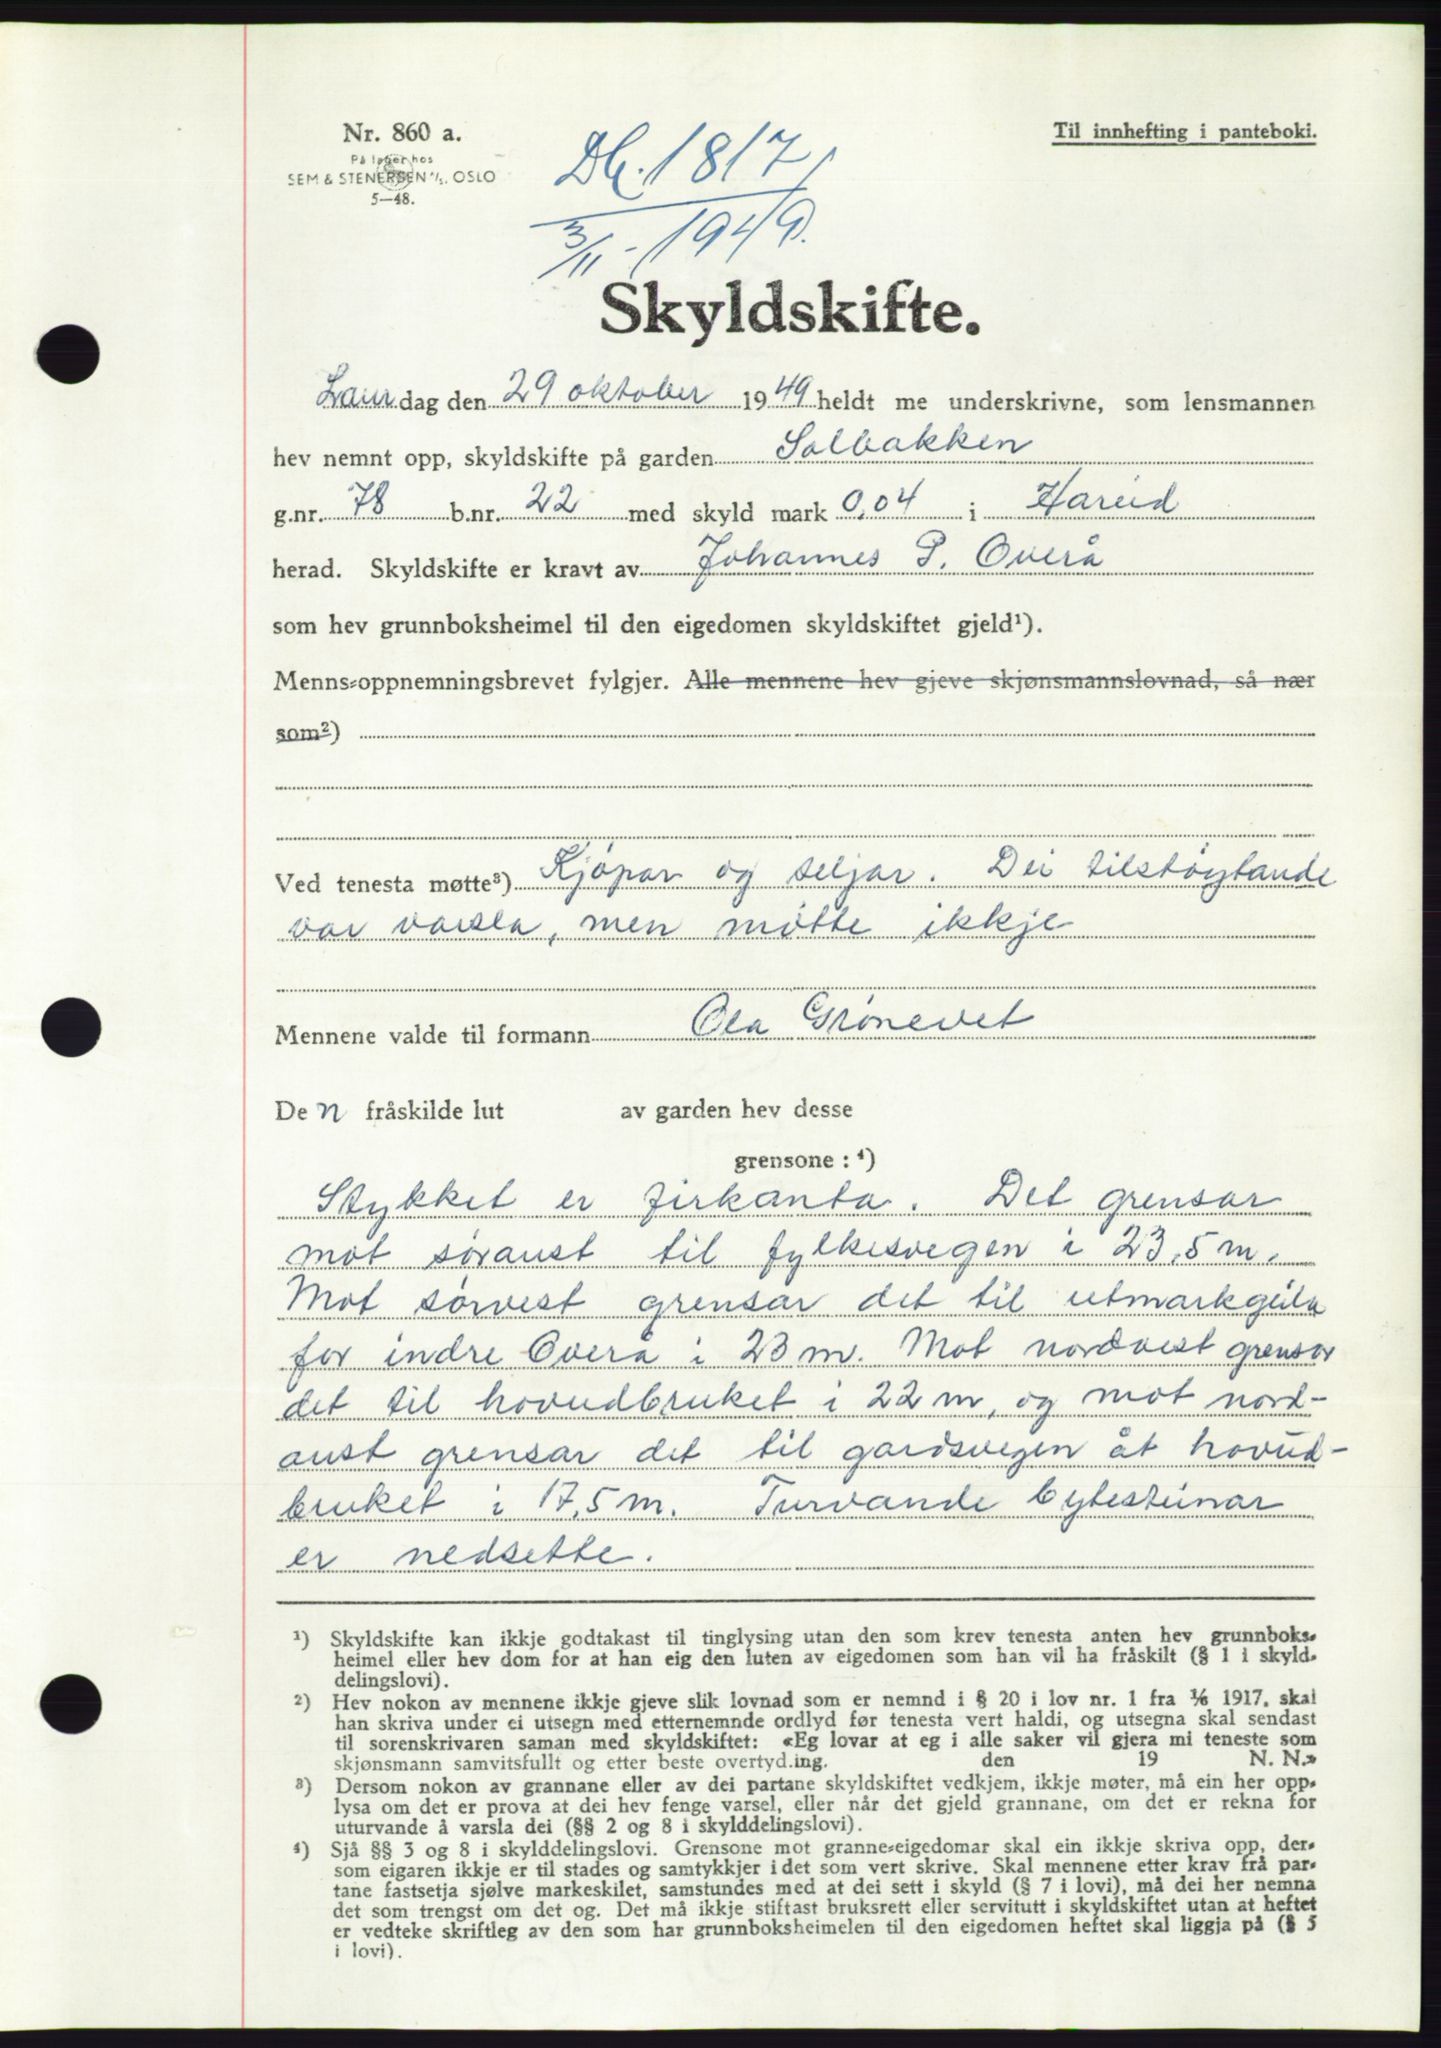 Nr. 860 a.
På lager hos
SEM & STENERSEN A/S. OSLO
5—48.
Til innhefting i panteboki.
Db. 1817
3/11 - 1949.
Skyldskifte.
Laur dag den 29 oktober 1949 heldt me underskrivne, som lensmannen
hev nemnt opp, skyldskifte på garden Solbakken
g.nr. 78 b.nr. 22 med skyld mark 0,04 i Hareid
herad. Skyldskifte er kravt av Johannes P. Overå
som hev grunnboksheimel til den eigedomen skyldskiftet gjeld¹).
Menns-oppnemningsbrevet fylgjer. Alle mennene hev gjeve skjønsmannslovnad, så nær
som²)
Ved tenesta møtte³) Kjöpar og seljar. Dei tilstöytande
var varsla, men møtte ikkje
Mennene valde til formann Ola Grönevet
De n fråskilde lut av garden hev desse
grensone : ⁴)
Stykket er firkanta. Det grensar
mot søraust til fylkesvegen i 23,5 m.
Mot sørvest grensar det til utmarkgeila
for indre Overå i 23 m. Mot nordvest grensar
det til hovudbruket i 22 m, og mot nord-
aust grensar det til gardsvegen åt hovud-
bruket i 17,5 m. Turvande bytesteinar
er nedsette.
¹) Skyldskifte kan ikkje godtakast til tinglysing utan den som krev tenesta anten hev grunnboks-
heimel eller hev dom for at han eig den luten av eigedomen som han vil ha fråskilt (§ 1 i skyld-
delingslovi).
²) Hev nokon av mennene ikkje gjeve slik lovnad som er nemnd i § 20 i lov nr. 1 fra ⅙ 1917, skal
han skriva under ei utsegn med etternemnde ordlyd før tenesta vert haldi, og utsegna skal sendast
til sorenskrivaren saman med skyldskiftet: «Eg lovar at eg i alle saker vil gjera mi teneste som
skjønsmann samvitsfullt og etter beste overtyding. den 19 N. N.»
³) Dersom nokon av grannane eller av dei partane skyldskiftet vedkjem, ikkje møter, må ein her opp-
lysa om det er prova at dei hev fenge varsel, eller når det gjeld grannane, om det er rekna for
uturvande å varsla dei (§§ 2 og 8 i skylddelingslovi).
⁴) Sjå §§ 3 og 8 i skylddelingslovi. Grensone mot granne-eigedomar skal ein ikkje skriva opp, der-
som eigaren ikkje er til stades og samtykkjer i det som vert skrive. Skal mennene etter krav frå par-
tane fastsetja sjølve markeskilet, samstundes med at dei sett i skyld (§ 7 i lovi), må dei her nemna
det som trengst om det og. Det må ikkje stiftast bruksrett eller servitutt i skyldskiftet utan at heftet
er vedteke skriftleg av den som har grunnboksheimelen til den eigedomen heftet skal liggja på (§ 5
i lovi).